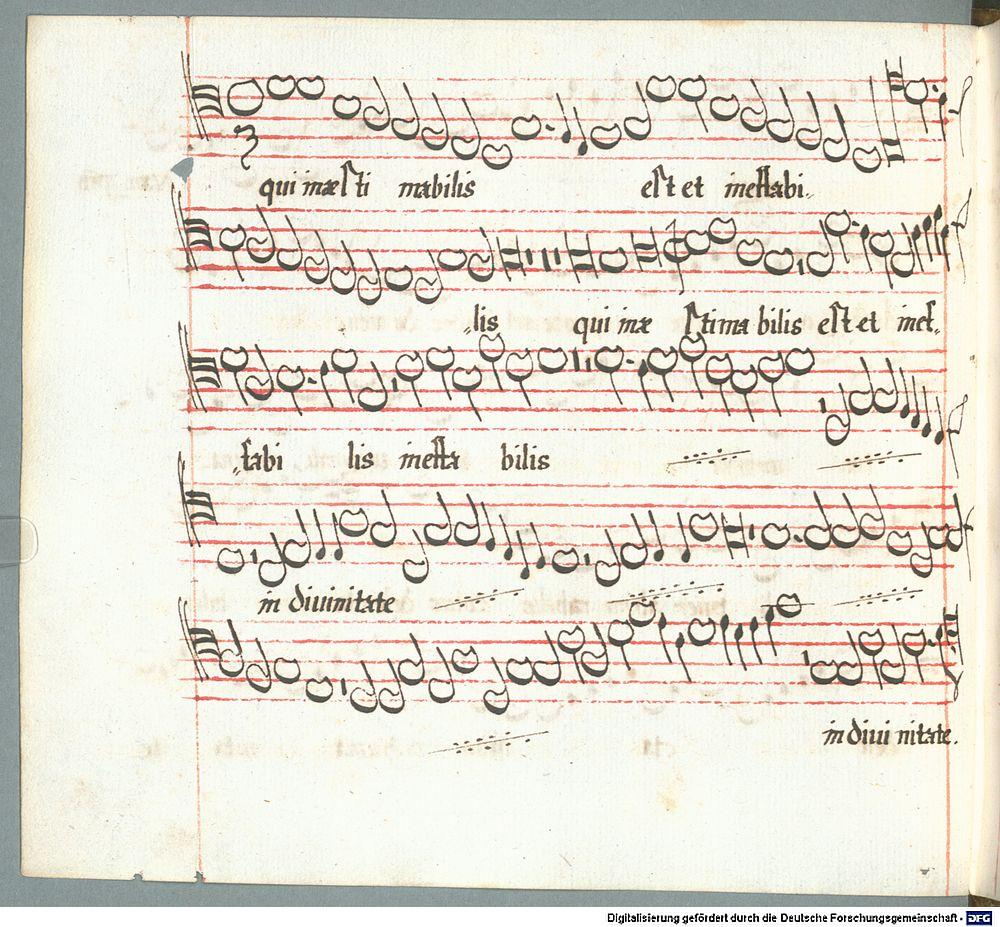 qui inæsti mabilis est et ineffabi
lis qui inæ stima bilis est et inef
fabi lis ineffa bilis
in diuinitate
in diui nitate.
Digitalisierung gefördert durch die Deutsche Forschungsgemeinschaft - DFG